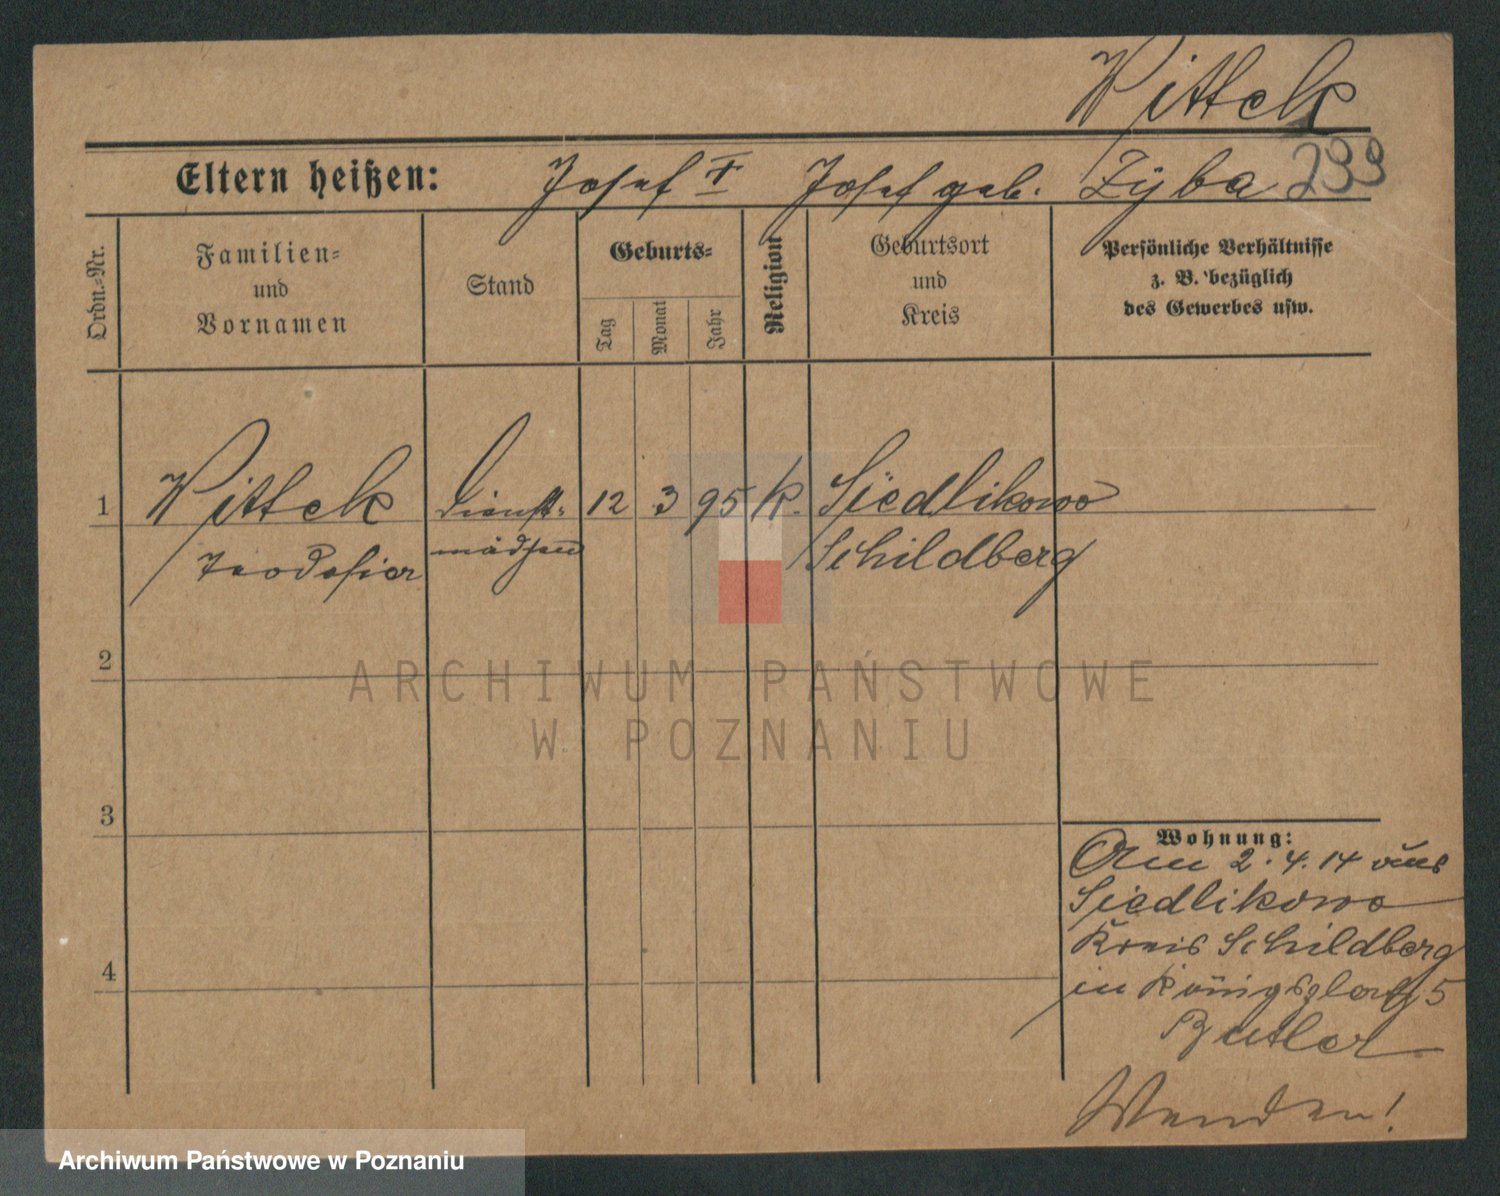 Wittek
Eltern heißen: Josef † Josef geb. Zyba 233
Ordn.-Nr.
Familien-
und
Vornamen
Stand
Geburts-
Tag
Monat
Jahr
Religion
Geburtsort
und
Kreis
Persönliche Verhältnisse
z. B. bezüglich
des Gewerbes usw.
1 Wittek Dienst- 12 3 95 K. Siedlikowo
mädchen Schildberg
2
3
4
Wohnung:
Am 2.4.14 aus
Siedlikowo
Kreis Schildberg
in Königsplatz 5
Butler
Wenden!
ARCHIWUM PAŃSTWOWE
W POZNANIU
Archiwum Państwowe w Poznaniu